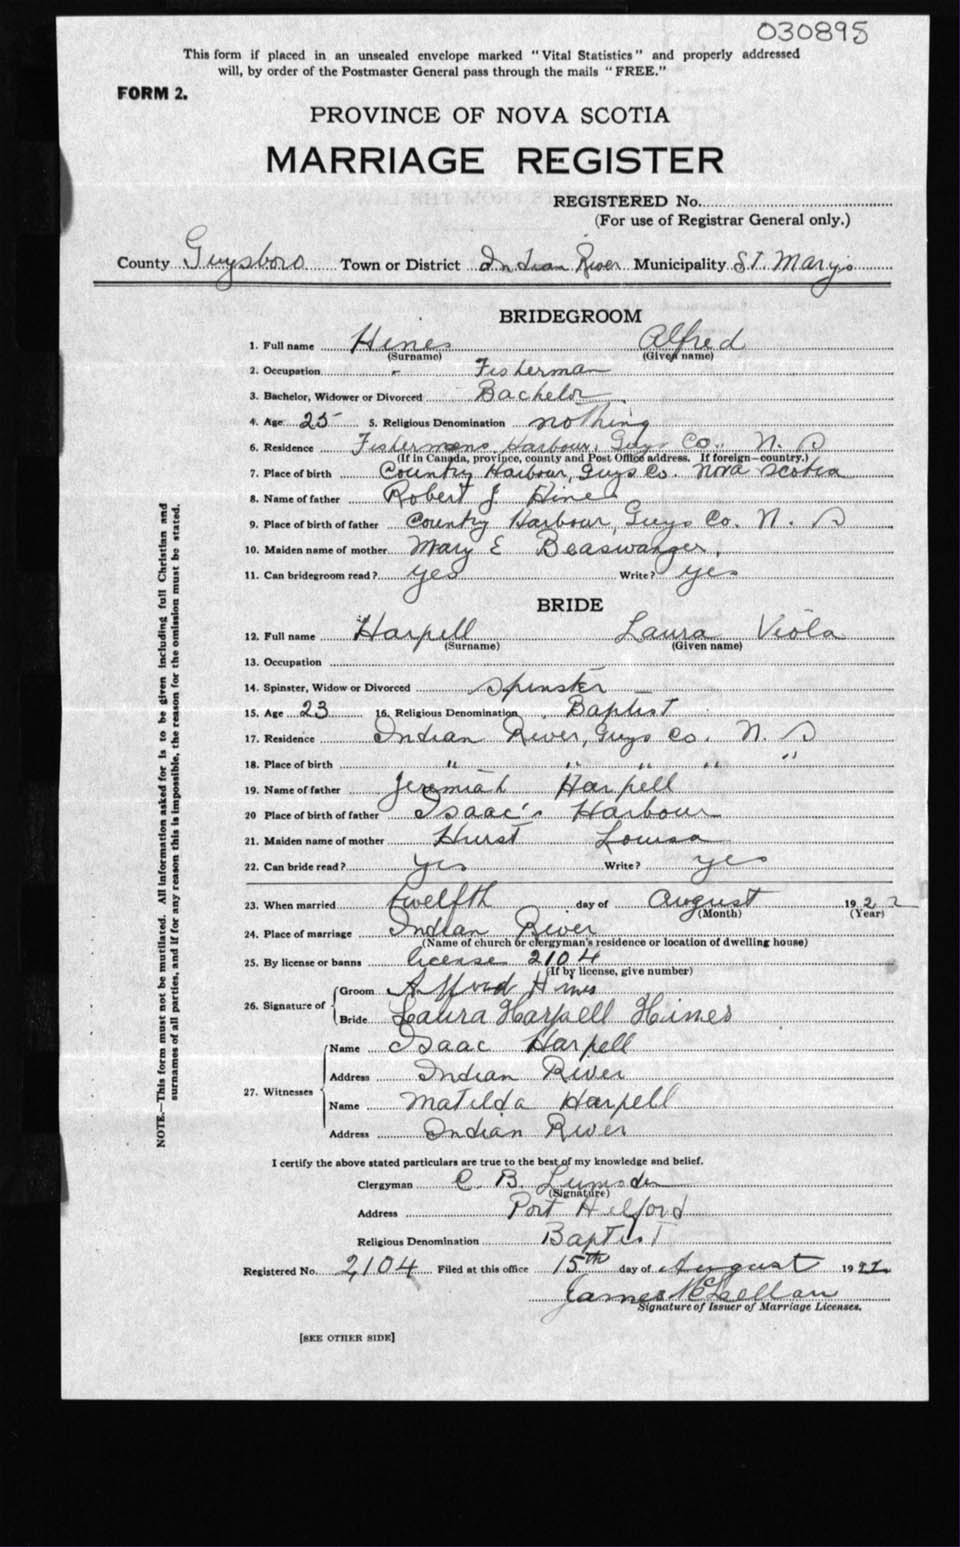 030895
This form if placed in an unsealed envelope marked "Vital Statistics" and properly addressed
will, by order of the Postmaster General pass through the mails "FREE."
FORM 2.
PROVINCE OF NOVA SCOTIA
MARRIAGE REGISTER
REGISTERED No.
(For use of Registrar General only.)
County Guysboro Town or District Indian River Municipality St. Marys
BRIDEGROOM
1. Full name Hines Alfred
(Surname) (Given name)
2. Occupation Fisherman
3. Bachelor, Widower or Divorced Bachelor
4. Age 25 5. Religious Denomination nothing
6. Residence Fishermens Harbour, Guys Co. N. S
(If in Canada, province, county and Post Office address. If foreign—country.)
7. Place of birth Country Harbour, Guys Co. Nova Scotia
8. Name of father Robert J Hines
9. Place of birth of father Country Harbour, Guys Co. N. S
10. Maiden name of mother Mary E Beaswanger,
11. Can bridegroom read? yes Write? yes
BRIDE
12. Full name Harpell Laura Viola
(Surname) (Given name)
13. Occupation
14. Spinster, Widow or Divorced Spinster
15. Age 23 16. Religious Denomination Baptist
17. Residence Indian River, Guys Co. N. S
18. Place of birth " " " " "
19. Name of father Jeremiah Harpell
20 Place of birth of father Isaac's Harbour
21. Maiden name of mother Hurst Louisa
22. Can bride read? yes Write? yes
23. When married twelfth day of August 1922
(Month) (Year)
24. Place of marriage Indian River
(Name of church or clergyman's residence or location of dwelling house)
25. By license or banns license 2104
(If by license, give number)
26. Signature of Groom Alfred Hines
Bride Laura Harpell Hines
27. Witnesses Name Isaac Harpell
Address Indian River
Name Matilda Harpell
Address Indian River
I certify the above stated particulars are true to the best of my knowledge and belief.
Clergyman C. B. Lumsden
(Signature)
Address Port Hilford
Religious Denomination Baptist
Registered No. 2104 Filed at this office 15th day of August 1922
James McLellan
Signature of Issuer of Marriage Licenses.
[SEE OTHER SIDE]
NOTE.—This form must not be mutilated. All information asked for is to be given including full Christian and
surnames of all parties, and if for any reason this is impossible, the reason for the omission must be stated.